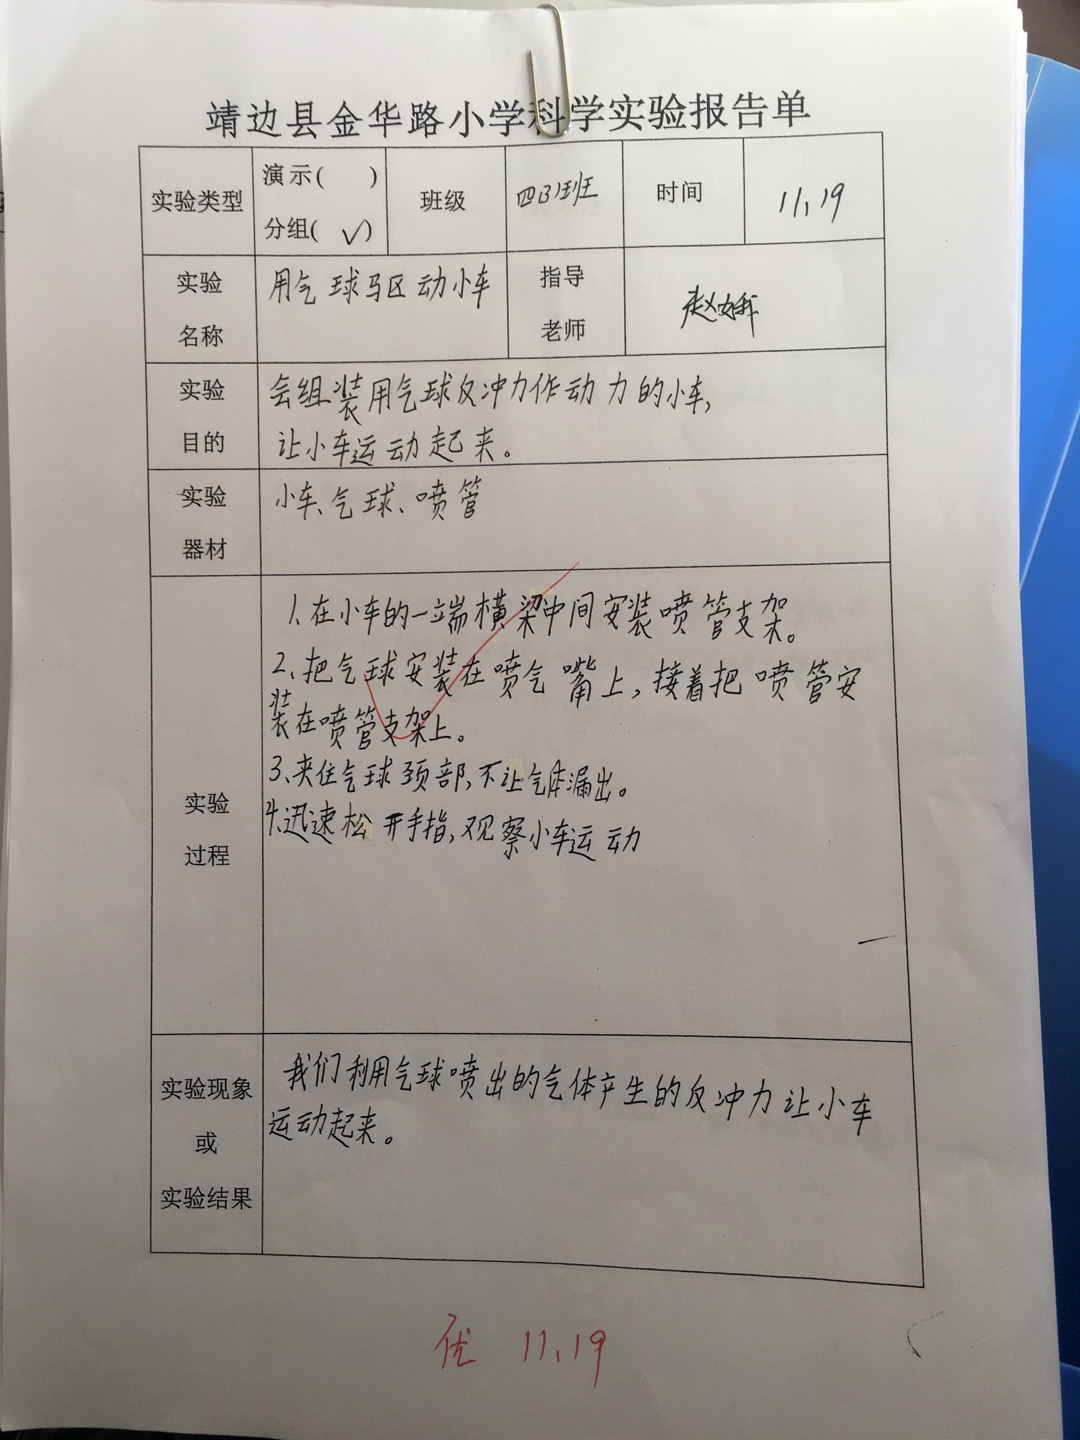 靖边县金华路小学科学实验报告单
实验类型 演示( ) 分组( √) 班级 四(3)班 时间 11.19
实验名称 用气球驱动小车 指导老师
实验目的 会组装用气球反冲力作动力的小车,
让小车运动起来。
实验器材 小车、气球、喷管
实验过程
1.在小车的一端横梁中间安装喷管支架。
2.把气球安装在喷气嘴上,接着把喷管安
装在喷管支架上。
3.夹住气球颈部,不让气体漏出。
4.迅速松开手指,观察小车运动
实验现象或实验结果
我们利用气球喷出的气体产生的反冲力让小车
运动起来。
优 11.19